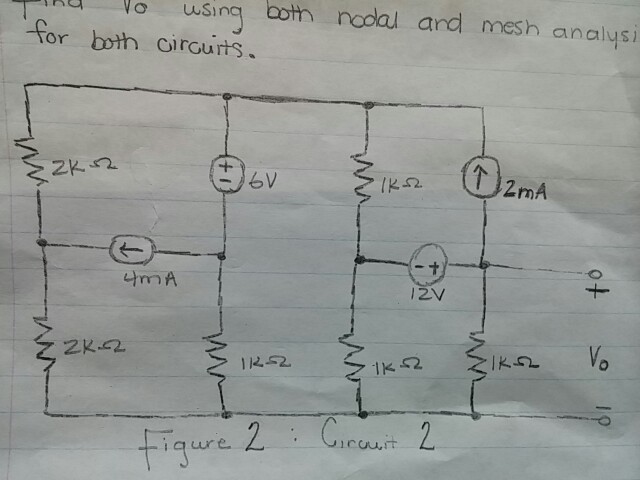 Find Vo using both nodal and mesh analysi
for both circuits.
2KΩ
+
-
6V
1KΩ
↑
2mA
←
4mA
- +
12V
+
2KΩ
1KΩ
1KΩ
1KΩ
Vo
-
Figure 2 : Circuit 2